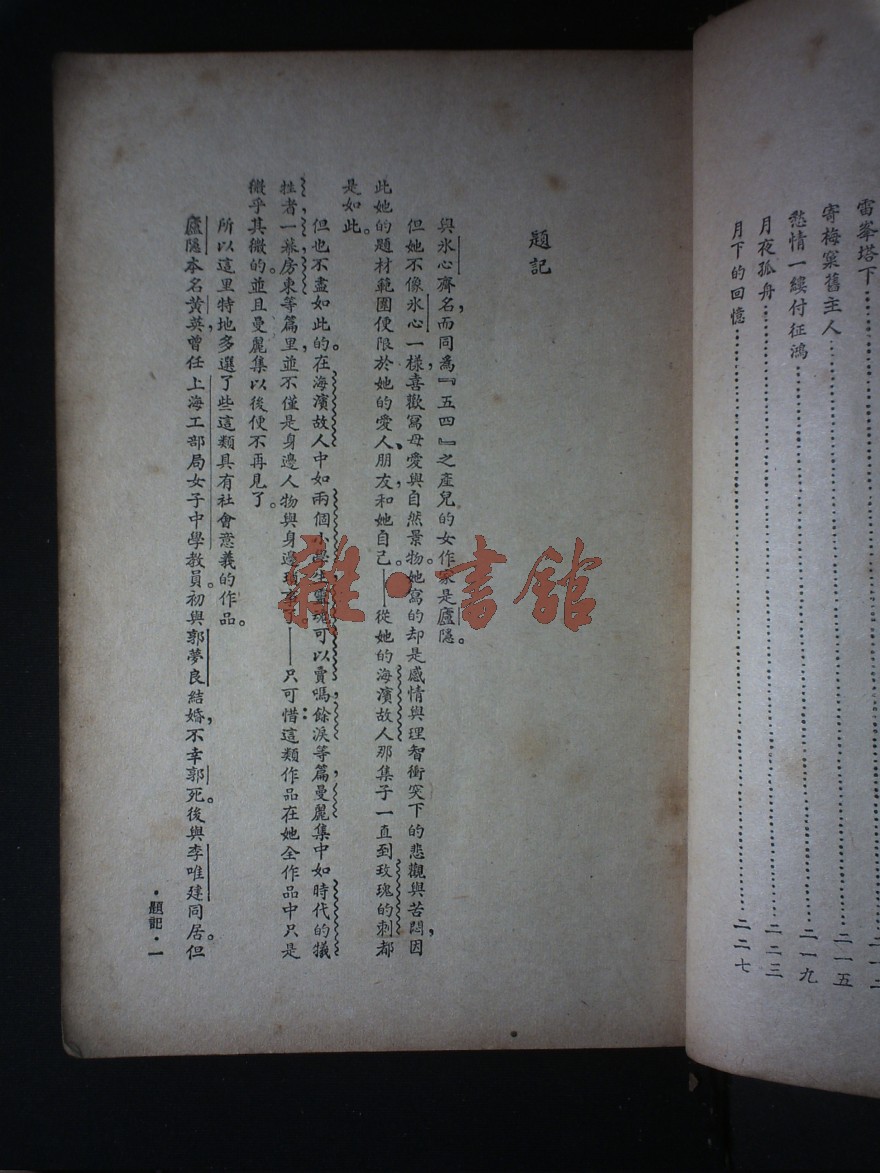 雷峯塔下……………………二一二
寄梅窠舊主人……………………二一五
愁情一縷付征鴻……………………二一九
月夜孤舟……………………二二三
月下的回憶……………………二二七
題記
與氷心齊名，而同爲『五四』之產兒的女作家是廬隱。
但她不像氷心一樣喜歡寫母愛與自然景物。她寫的却是感情與理智衝突下的悲觀與苦悶，因
此她的題材範圍便限於她的愛人、朋友，和她自己。——從她的海濱故人那集子一直到玫瑰的刺都
是如此。
但也不盡如此的。在海濱故人中如兩個小學生，靈魂可以賣嗎，餘淚等篇，曼麗集中如時代的犧
牲者，一幕，房東等篇里，並不僅是身邊人物與身邊瑣事了。——只可惜：這類作品在她全作品中只是
微乎其微的。並且曼麗集以後便不再見了。
所以這里特地多選了些這類具有社會意義的作品。
廬隱本名黃英，曾任上海工部局女子中學教員。初與郭夢良結婚，不幸郭死。後與李唯建同居。但
·題記·一
雜·書館